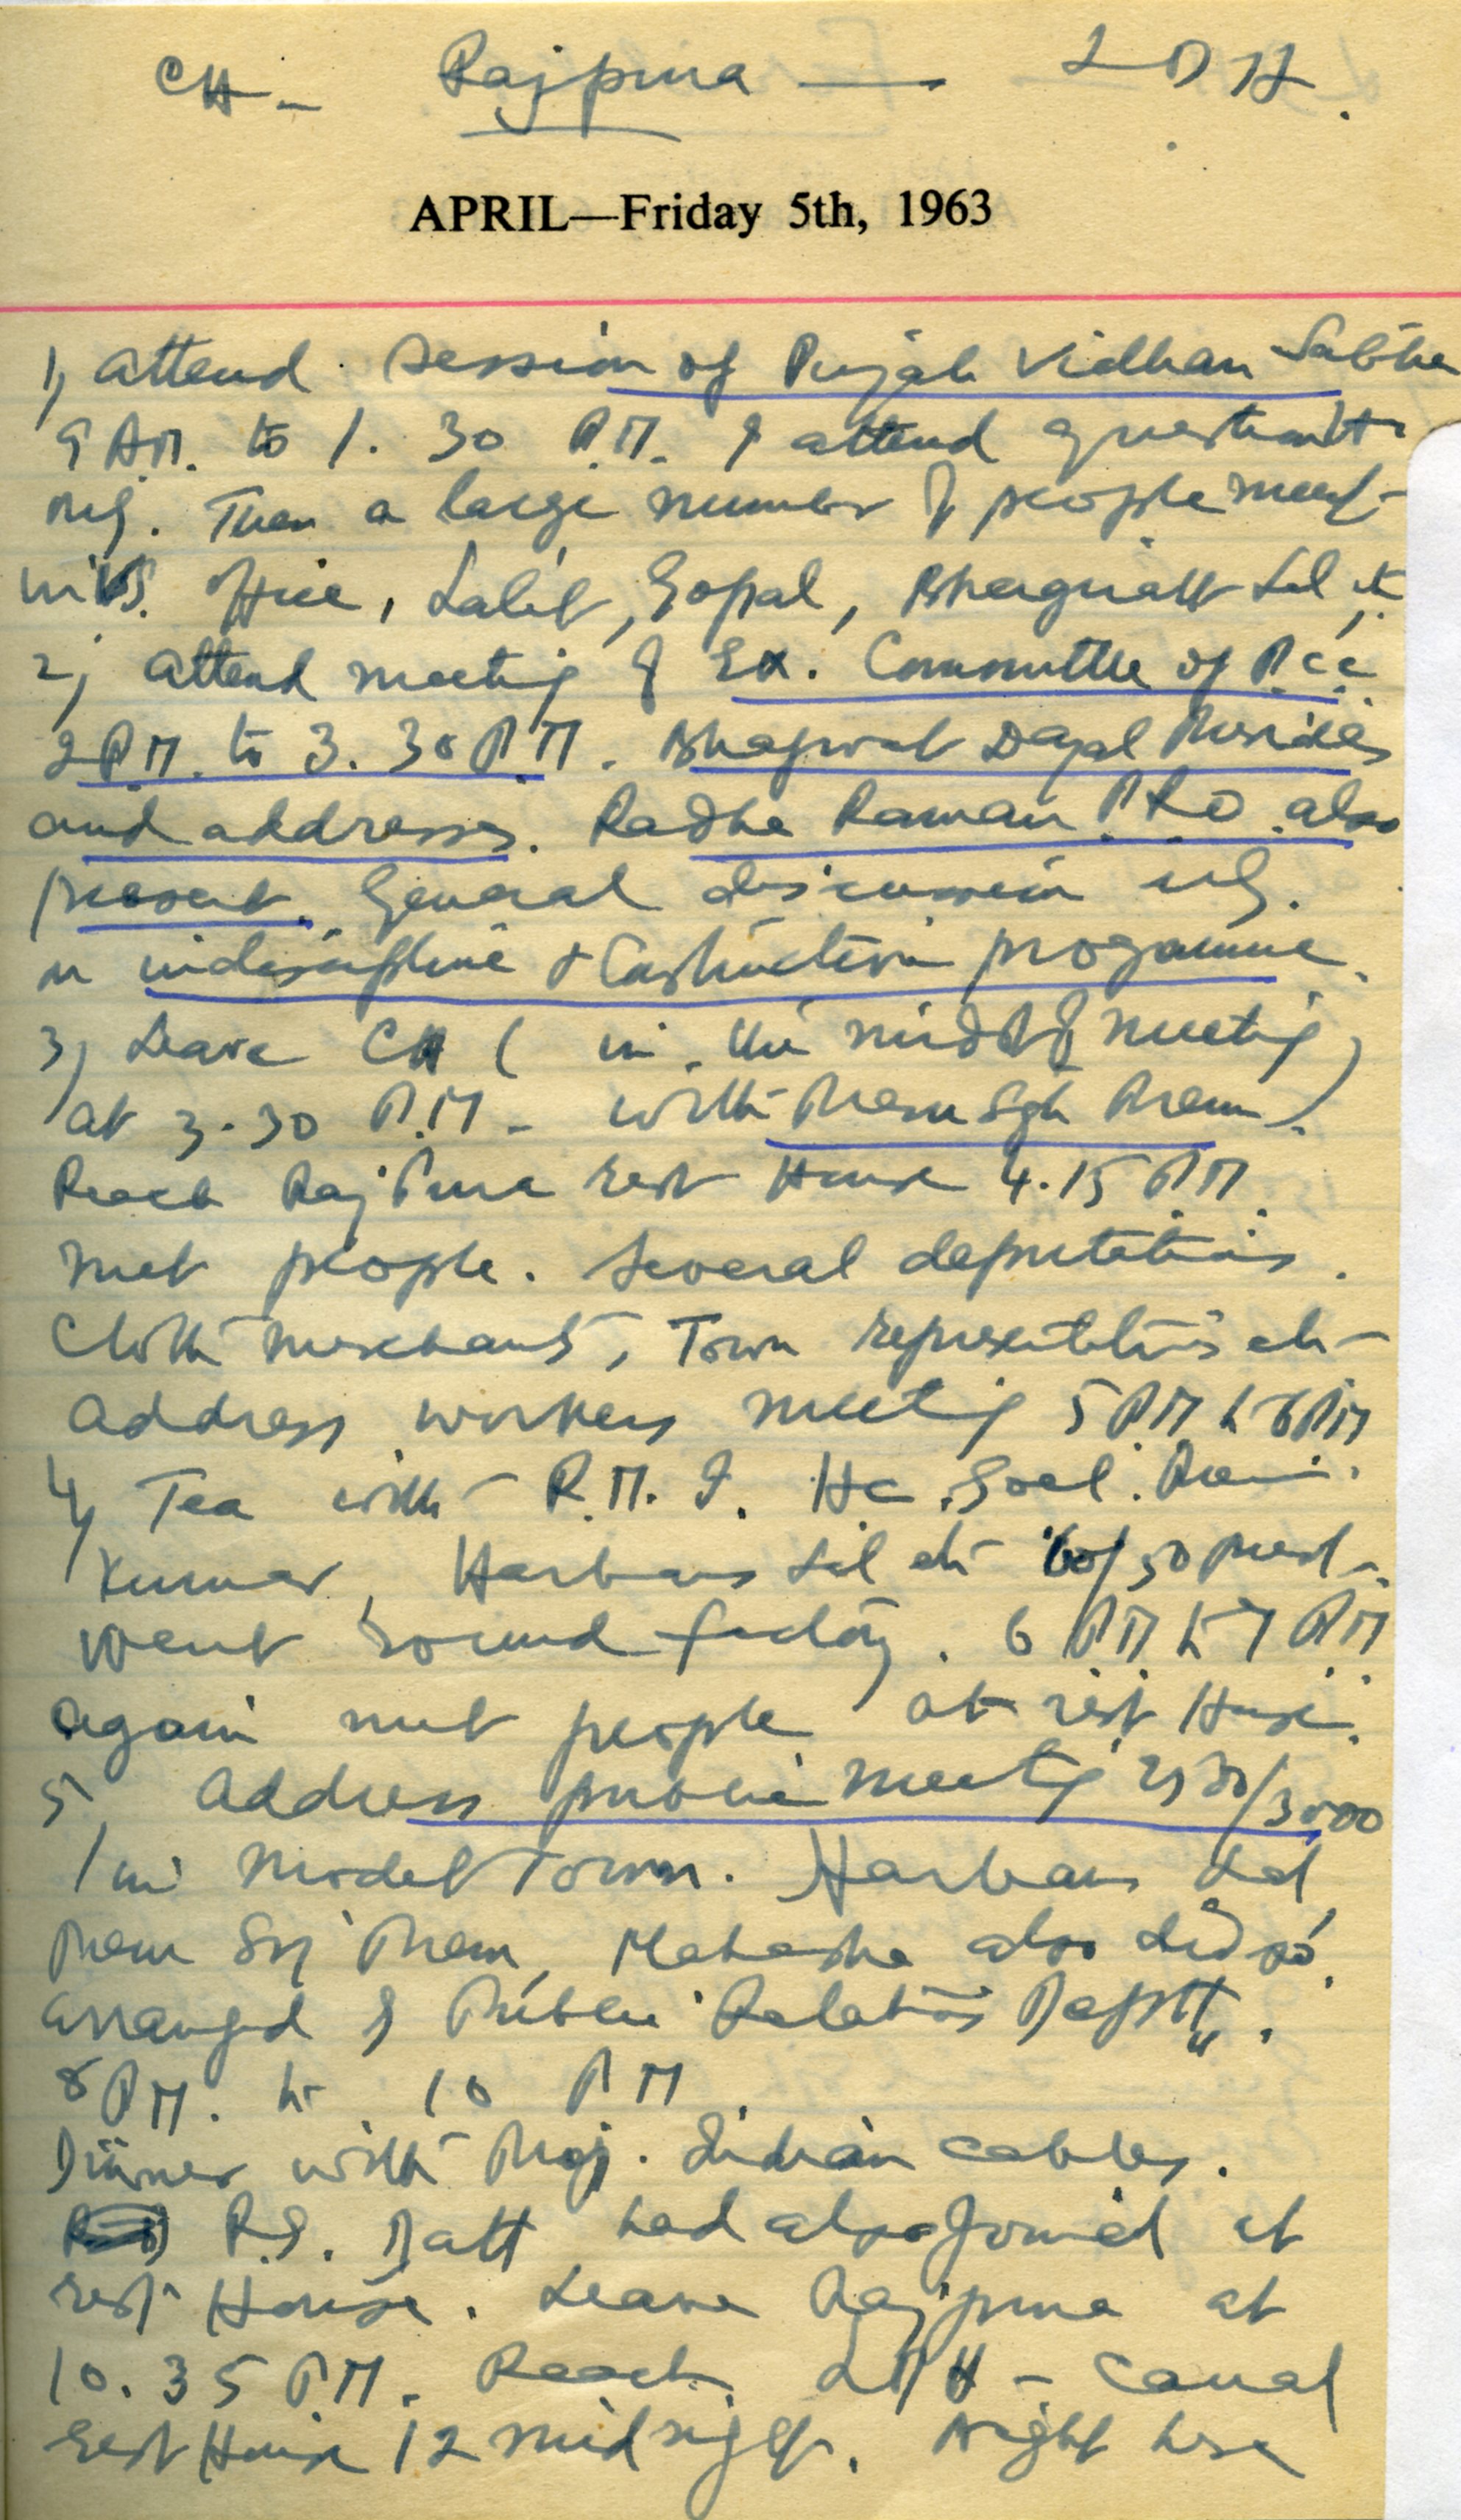 CH - Rajpura — LDH.
APRIL—Friday 5th, 1963
1) Attend session of Punjab Vidhan Sabha
9 A.M. to 1.30 P.M. I attend question Hr
only. Then a large number of people meet
in office, Lalit, Gopal, Lal etc
2) Attend meeting of Ex. Committee of P.C.C
2 P.M. to 3.30 P.M. Bhagwat Dayal Presides
and addresses. Radhe Raman P.R.O. also
present. General discussion only.
on indiscipline & Constructive programme.
3) Leave CH (in the midst of meeting)
at 3.30 P.M. - with Prem Sgh Prem.
Reach Rajpura rest House 4.15 PM.
met people. Several deputations.
Cloth merchants, Town representatives etc
Address workers meeting 5 PM to 6 PM
4) Tea with R.M.I. H.C. Goel. Prem
Kumar, Harbans Lal etc 60/50 present.
Went round factory. 6 PM to 7 PM
again met people at rest House.
5) Address public meeting /3000
in Model Town. Harbans Lal
Prem Sgh Prem, Mahasha also did so.
arranged by Public Relations Deptt.
8 P.M. to 10 PM
Dinner with Indian cables.
R.S. Datt had also joined at
rest House. Leave Rajpura at
10.35 PM. Reach LDH - Canal
rest House 12 midnight. Night here